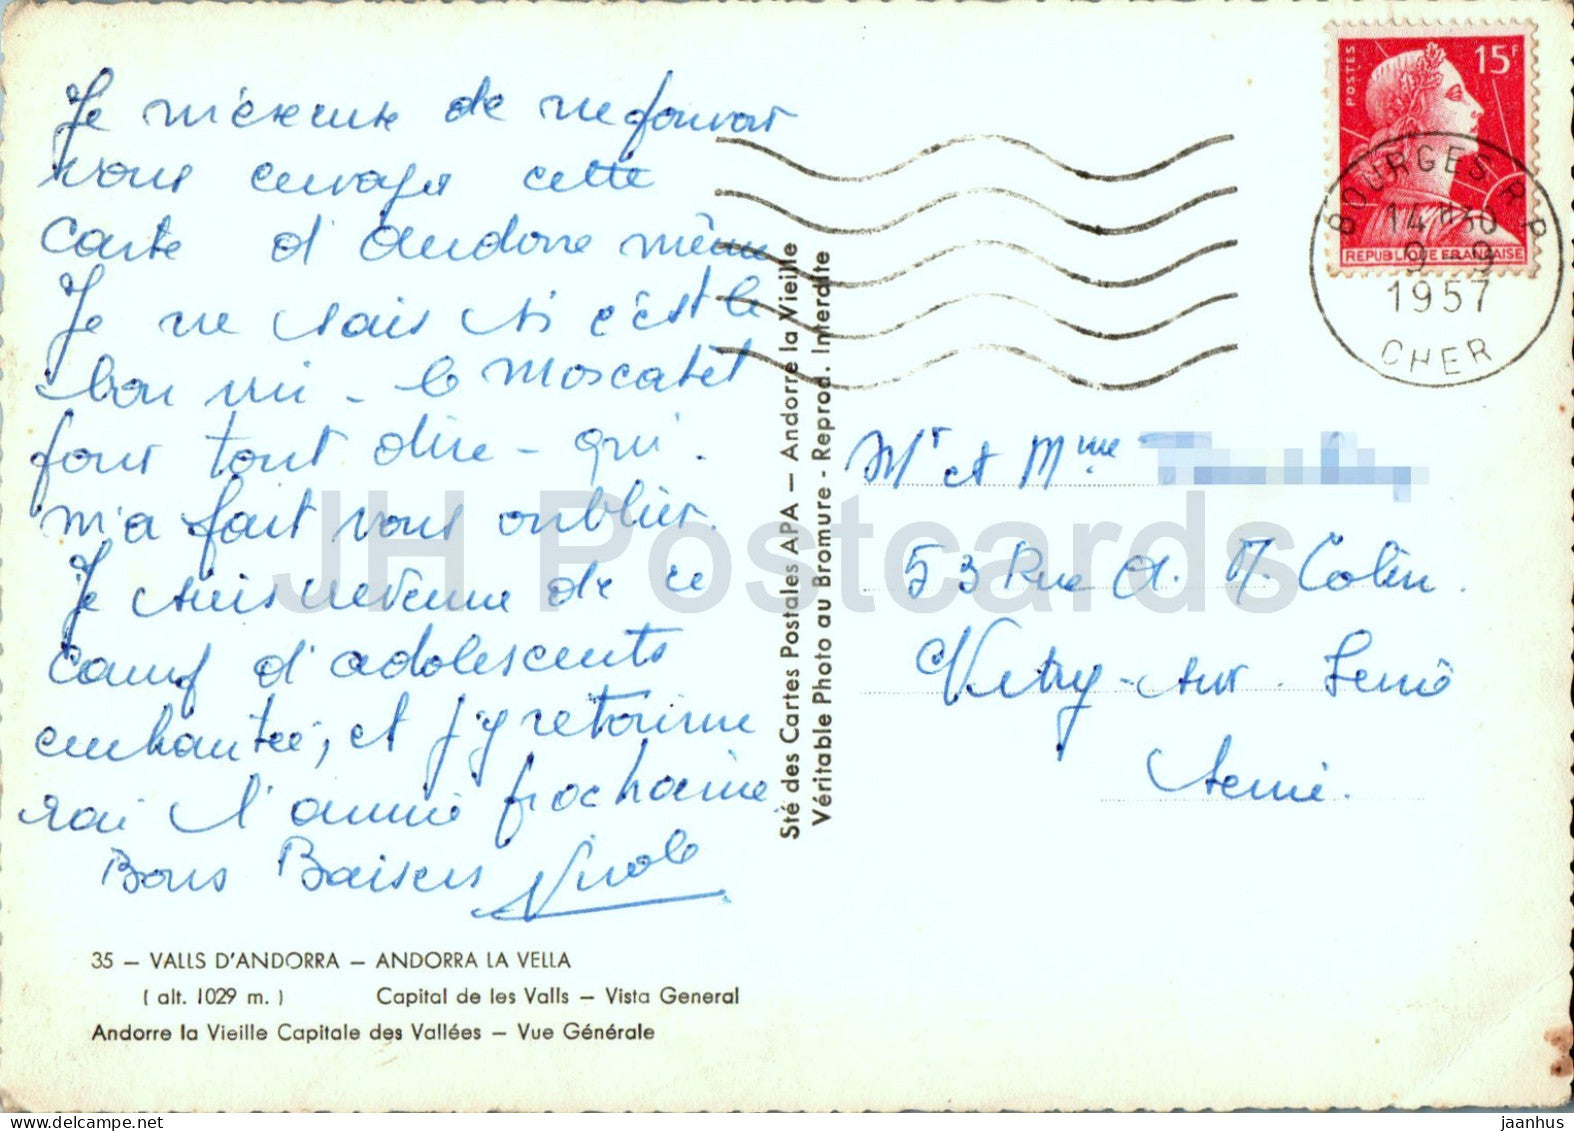 Je m'excuse de ne pouvoir
vous envoyer cette
carte d'Andorre même
Je ne sais si c'est le
bon vin - le Moscatel
pour tout dire - qui
m'a fait vous oublier.
Je suis revenue de ce
camp d'adolescents
enchantée, et j'y retourne
rai l'année prochaine.
Bons Baisers Nicole
35 – VALLS D'ANDORRA – ANDORRA LA VELLA
( alt. 1029 m. ) Capital de les Valls – Vista General
Andorre la Vieille Capitale des Vallées – Vue Générale
Sté des Cartes Postales APA – Andorre la Vieille
Véritable Photo au Bromure - Reprod. Interdite
POSTES
15F
REPUBLIQUE FRANÇAISE
BOURGES R.P.
14H30
9 - 9
1957
CHER
Mr et Mme
53 Rue A. M. Colin.
Vitry-sur-Seine
Seine.
JH Postcards
delcampe.net
jaanhus